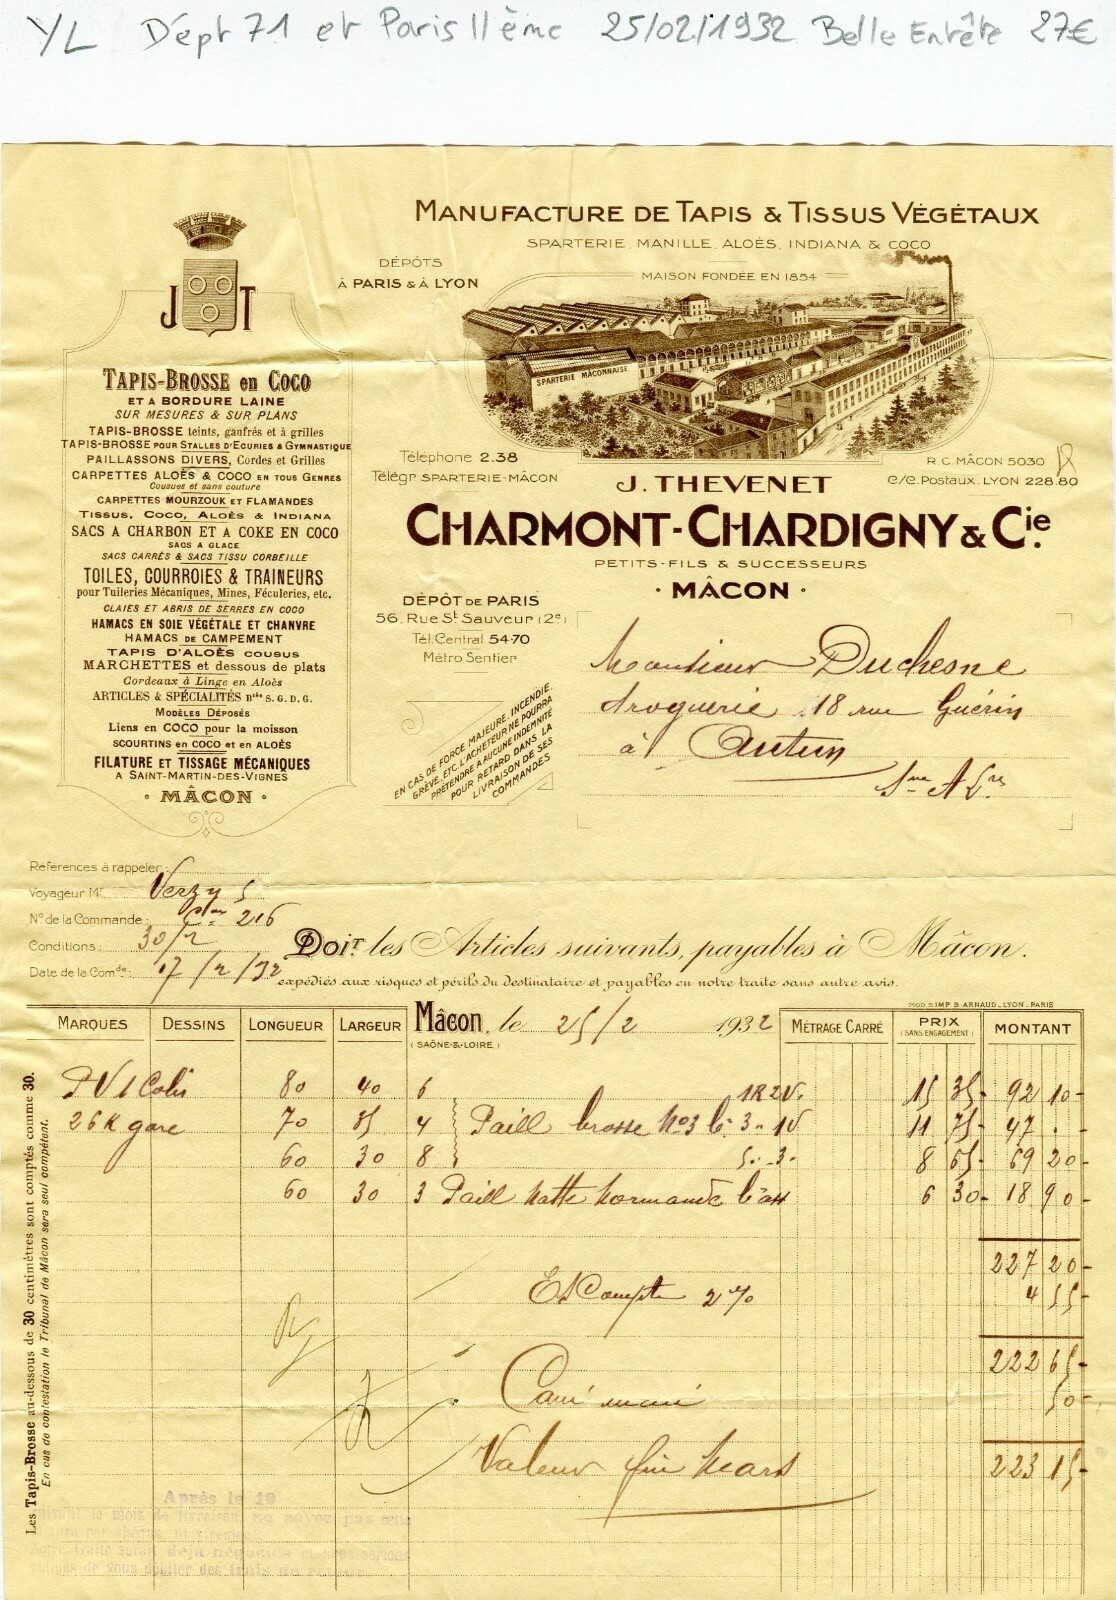 YL Dépt 71 et Paris IIème 25/02/1932 Belle Entête 27€
MANUFACTURE DE TAPIS & TISSUS VÉGÉTAUX
SPARTERIE, MANILLE, ALOÈS, INDIANA & COCO
DÉPÔTS
À PARIS & À LYON
MAISON FONDÉE EN 1854
SPARTERIE MÂCONNAISE
J T
TAPIS-BROSSE en COCO
ET A BORDURE LAINE
SUR MESURES & SUR PLANS
TAPIS-BROSSE teints, gaufrés et à grilles
TAPIS-BROSSE POUR STALLES D'ECURIES & GYMNASTIQUE
PAILLASSONS DIVERS, Cordes et Grilles
CARPETTES ALOÈS & COCO EN TOUS GENRES
Cousues et sans couture
CARPETTES MOURZOUK ET FLAMANDES
TISSUS, COCO, ALOÈS & INDIANA
SACS A CHARBON ET A COKE EN COCO
SACS A GLACE
SACS CARRÉS & SACS TISSU CORBEILLE
TOILES, COURROIES & TRAINEURS
pour Tuileries Mécaniques, Mines, Féculeries, etc.
CLAIES ET ABRIS DE SERRES EN COCO
HAMACS EN SOIE VÉGÉTALE ET CHANVRE
HAMACS DE CAMPEMENT
TAPIS D'ALOÈS COUSUS
MARCHETTES et dessous de plats
Cordeaux à Linge en Aloès
ARTICLES & SPÉCIALITÉS Btés S. G. D. G.
MODÈLES DÉPOSÉS
Liens en COCO pour la moisson
SCOURTINS en COCO et en ALOÈS
FILATURE ET TISSAGE MÉCANIQUES
A SAINT-MARTIN-DES-VIGNES
· MÂCON ·
Téléphone 2.38
Télégr. SPARTERIE-MÂCON
R.C. MÂCON 5030
C/C. Postaux. LYON 228.80
J. THEVENET
CHARMONT-CHARDIGNY & Cie.
PETITS-FILS & SUCCESSEURS
· MÂCON ·
DÉPÔT DE PARIS
56, Rue St Sauveur (2e)
Tél. Central 54-70
Métro Sentier
EN CAS DE FORCE MAJEURE, INCENDIE,
GRÈVE, ETC. L'ACHETEUR NE POURRA
PRÉTENDRE À AUCUNE INDEMNITÉ
POUR RETARD DANS LA
LIVRAISON DE SES
COMMANDES
Monsieur Duchesne
droguerie 18 rue Guérin
à Autun
Références à rappeler:
Voyageur Mr Verzy
No de la Commande: 216
Conditions: 30/2
Date de la Comde: 17/2/32
Doit les Articles suivants, payables à Mâcon.
expédiés aux risques et périls du destinataire et payables en notre traite sans autre avis.
MOD. 5 IMP B. ARNAUD. LYON. PARIS
Mâcon, le 25/2 1932
(SAÔNE-&-LOIRE)
MARQUES DESSINS LONGUEUR LARGEUR MÉTRAGE CARRÉ PRIX (SANS ENGAGEMENT) MONTANT
PV 1 Colis 80 40 6 1R 2V. 15 35 92 10
26K gare 70 35 4 Paill brosse No3 3 11 75 47 .
60 30 8 8 65 69 20
60 30 3 Paill natte normande 6 30 18 90
227 20
Escompte 2% 4 55
222 65
50
Valeur fin Mars 223 15
Les Tapis-Brosse au-dessous de 30 centimètres sont comptés comme 30.
En cas de contestation le Tribunal de Mâcon sera seul compétent.
Après le 10